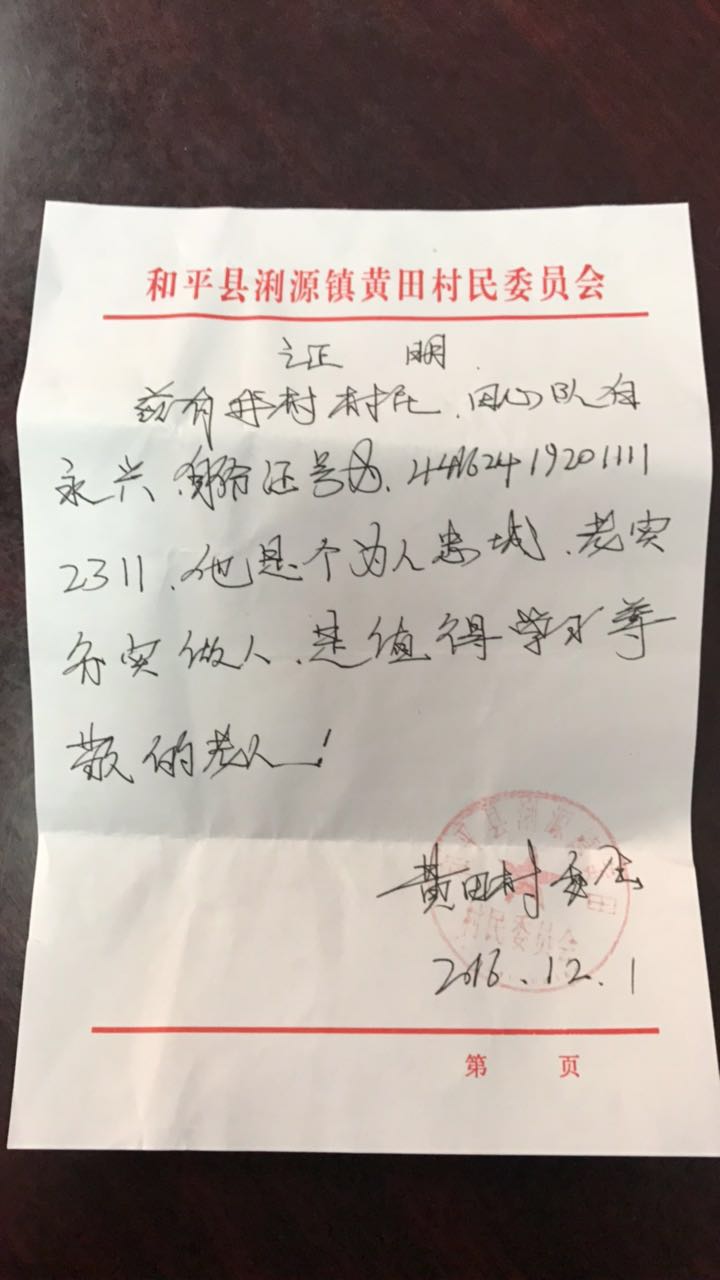 和平县浰源镇黄田村民委员会
证 明
兹有我村村民、田心队
永兴、身份证号为、44162419201111
2311、他是个为人忠诚、老实
务实做人、是值得学习尊
敬的老人！
和平县浰源镇黄田
村民委员会
黄田村委会
2016.12.1
第 页